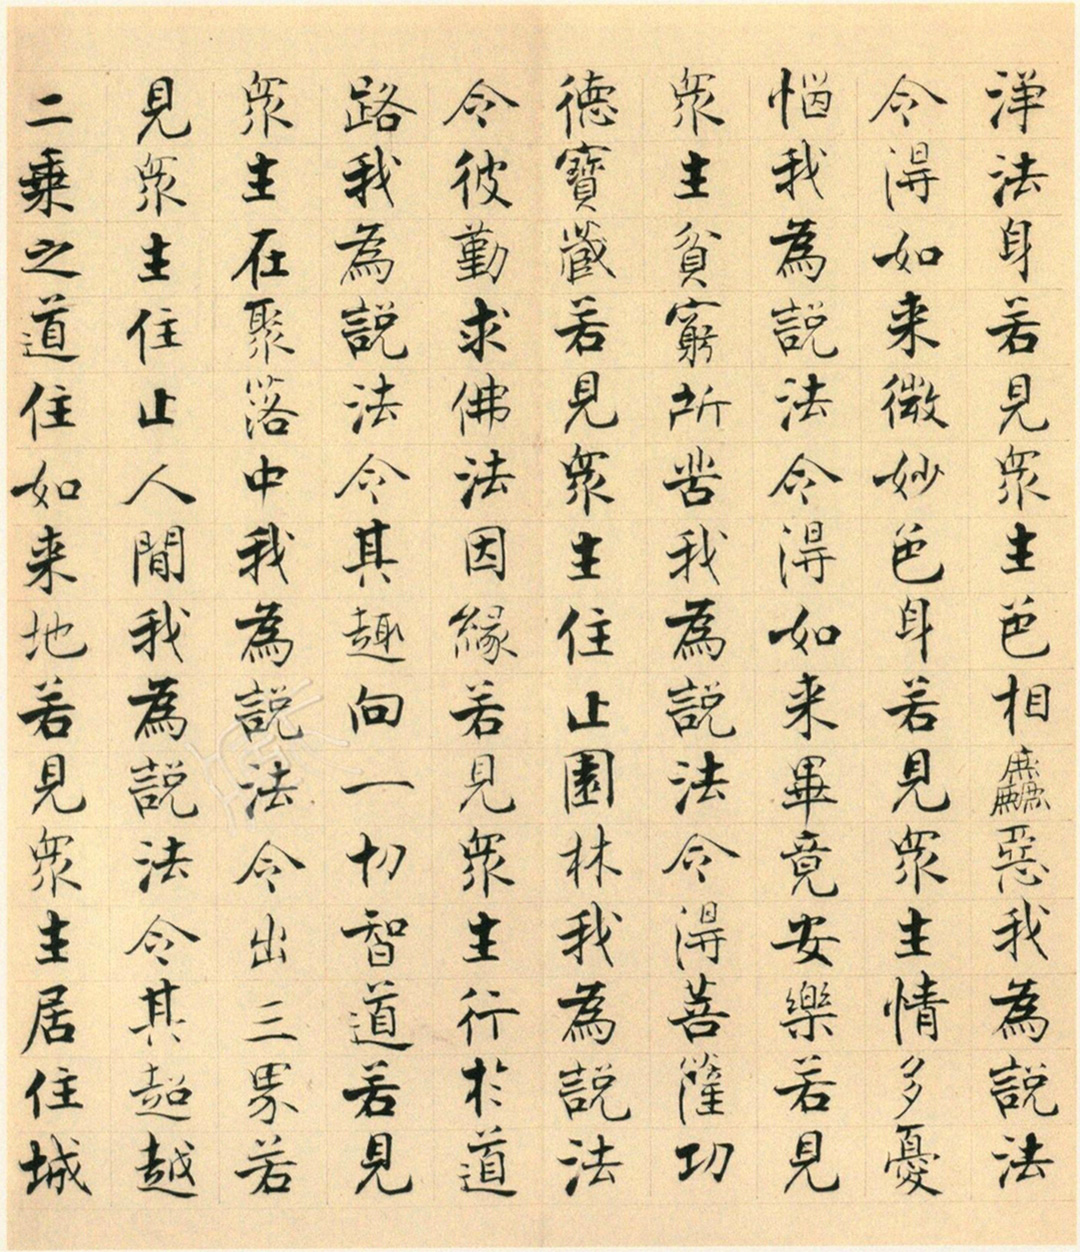 淨法身若見眾生色相麤惡我為說法
令得如来微妙色身若見眾生情多憂
惱我為說法令得如来畢竟安樂若見
眾生貧窮所苦我為說法令得菩薩功
德寶藏若見眾生住止園林我為說法
令彼勤求佛法因緣若見眾生行於道
路我為說法令其趣向一切智道若見
眾生在聚落中我為說法令出三界若
見眾生住止人間我為說法令其超越
二乘之道住如来地若見眾生居住城